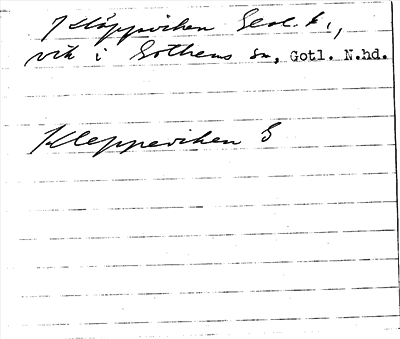 Kläppviken Geol. k.,
vik i Gothems sn, Gotl. N.hd.
Kleppeviken S